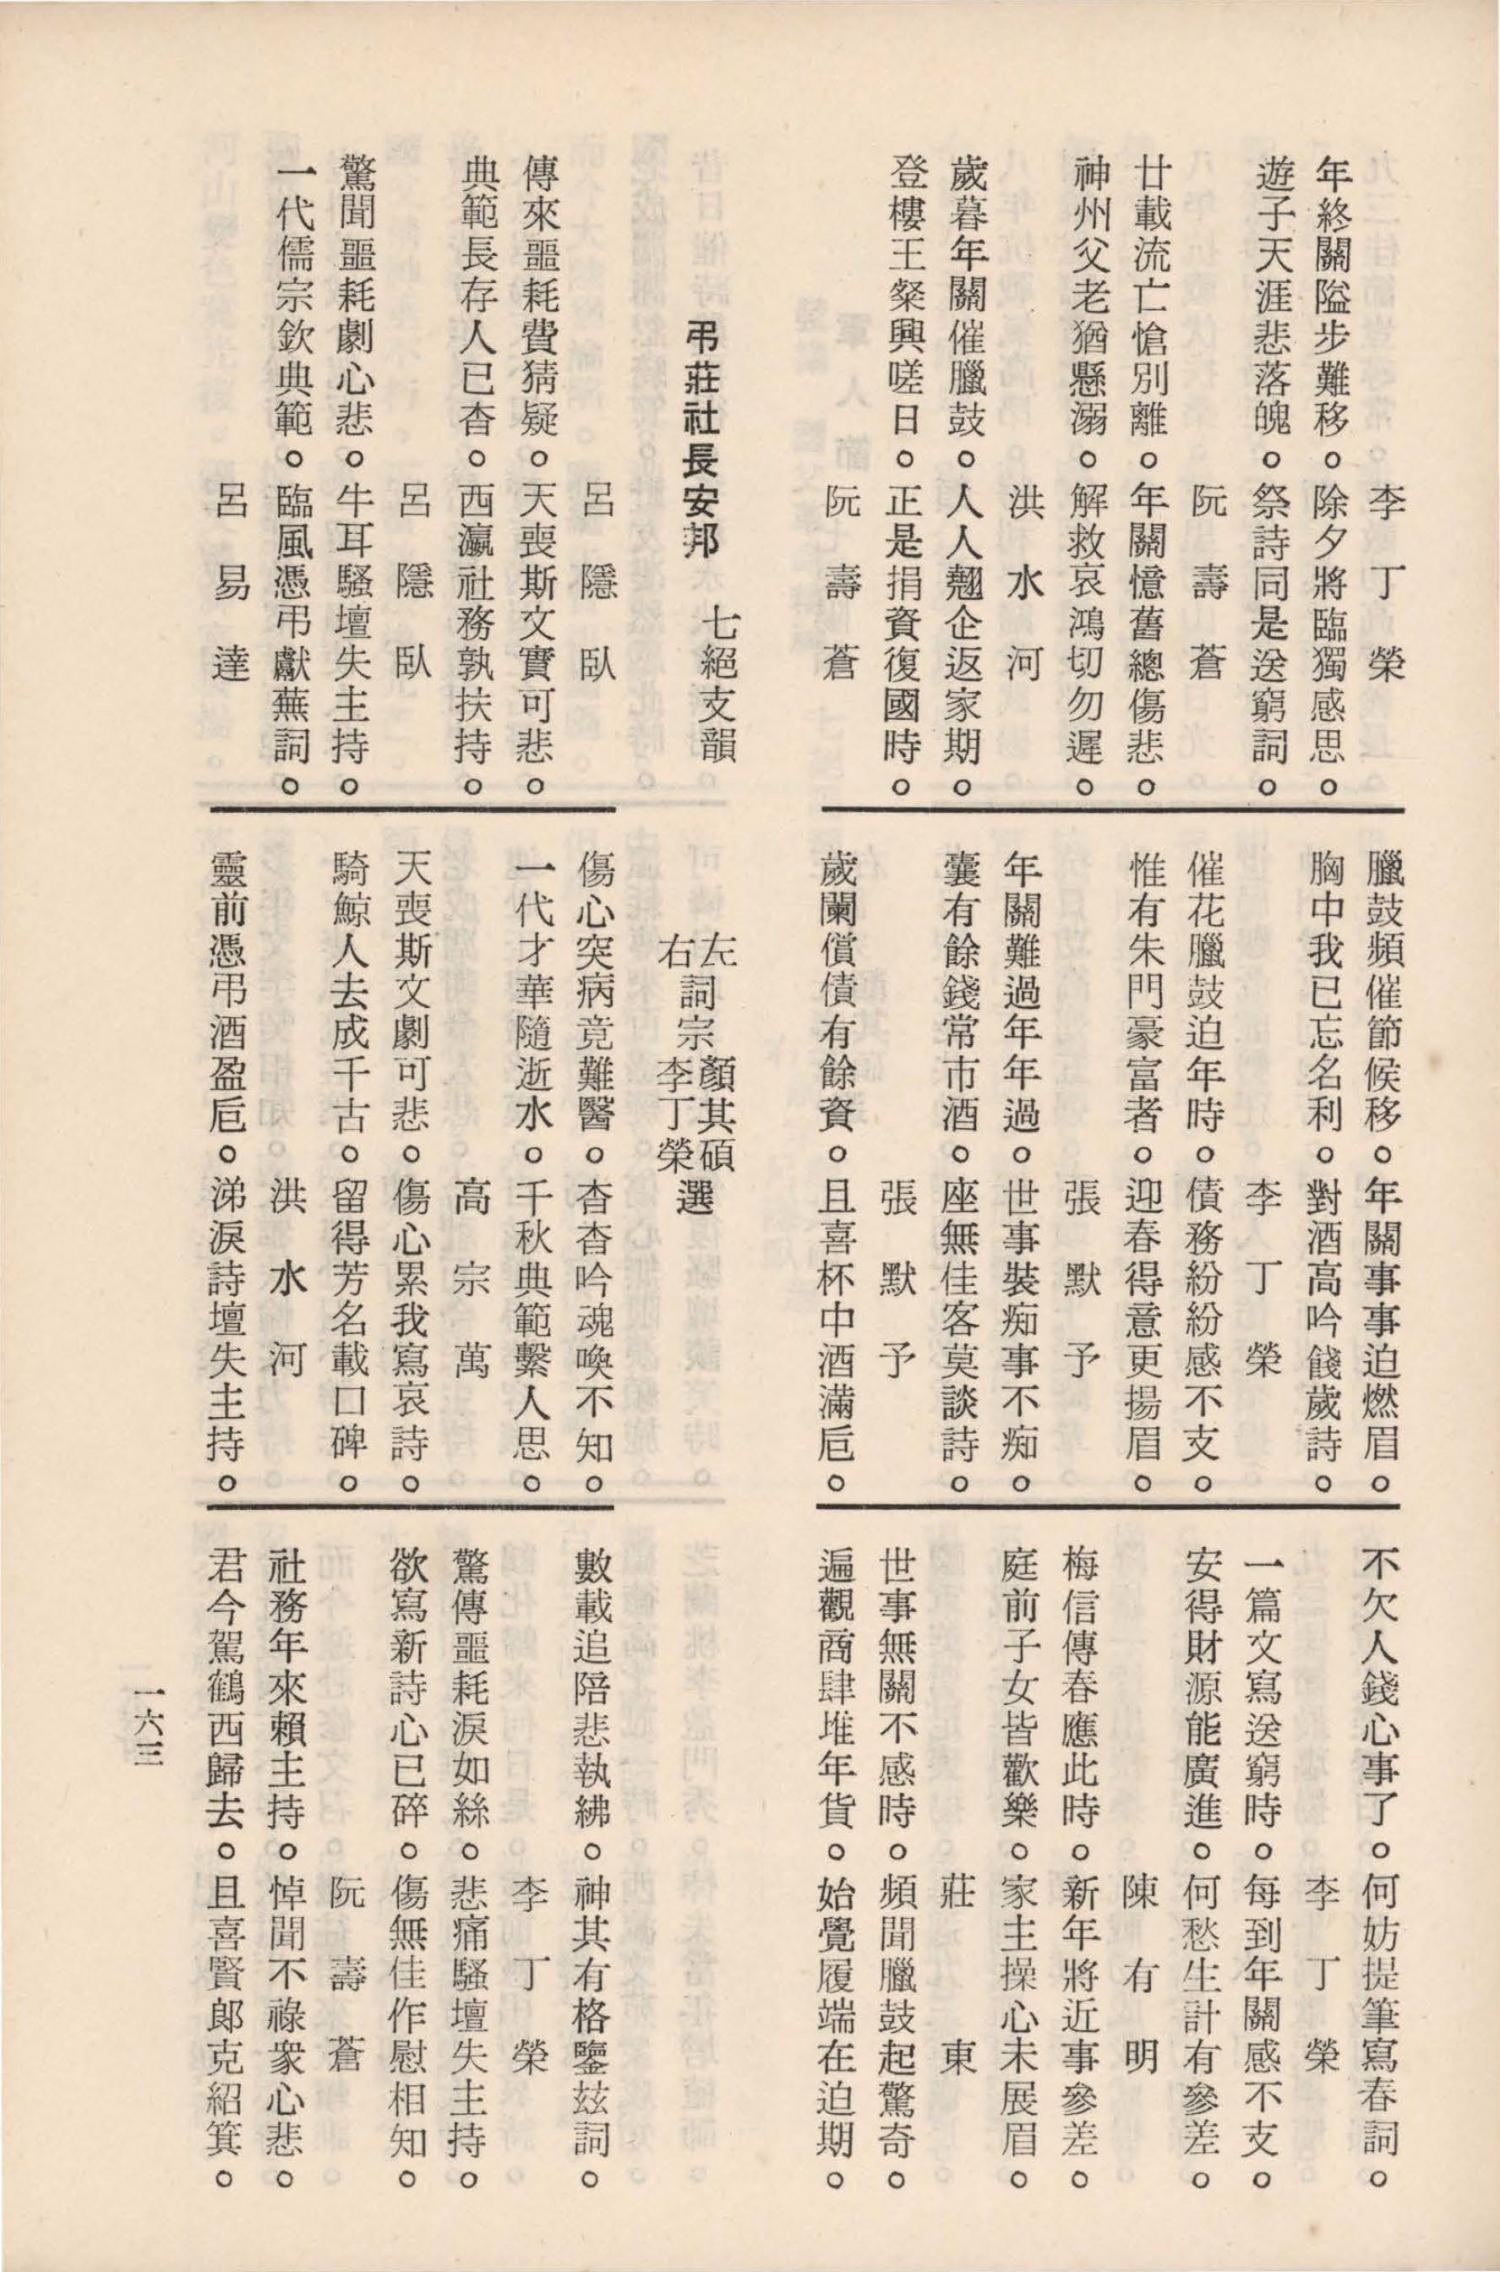 李丁榮
年終關隘步難移。除夕將臨獨感思。
遊子天涯悲落魄。祭詩同是送窮詞。
阮壽蒼
廿載流亡愴別離。年關憶舊總傷悲。
神州父老猶懸溺。解救哀鴻切勿遲。
洪水河
歲暮年關催臘鼓。人人翹企返家期。
登樓王粲興嗟日。正是捐資復國時。
阮壽蒼
臘鼓頻催節候移。年關事事迫燃眉。
胸中我已忘名利。對酒高吟餞歲詩。
李丁榮
催花臘鼓迫年時。債務紛紛感不支。
惟有朱門豪富者。迎春得意更揚眉。
張默予
年關難過年年過。世事裝痴事不痴。
囊有餘錢常市酒。座無佳客莫談詩。
張默予
歲闌償債有餘資。且喜杯中酒滿卮。
不欠人錢心事了。何妨提筆寫春詞。
李丁榮
一篇文寫送窮時。每到年關感不支。
安得財源能廣進。何愁生計有參差。
陳有明
梅信傳春應此時。新年將近事參差。
庭前子女皆歡樂。家主操心未展眉。
莊東
世事無關不感時。頻聞臘鼓起驚奇。
遍觀商肆堆年貨。始覺履端在迫期。
弔莊社長安邦 七絕支韻
左詞宗顏其碩選
右詞宗李丁榮選
呂隱臥
傳來噩耗費猜疑。天喪斯文實可悲。
典範長存人已杳。西瀛社務孰扶持。
呂隱臥
驚聞噩耗劇心悲。牛耳騷壇失主持。
一代儒宗欽典範。臨風憑弔獻蕪詞。
呂易達
傷心突病竟難醫。杳杳吟魂喚不知。
一代才華隨逝水。千秋典範繫人思。
高宗萬
天喪斯文劇可悲。傷心累我寫哀詩。
騎鯨人去成千古。留得芳名載口碑。
洪水河
靈前憑弔酒盈卮。涕淚詩壇失主持。
數載追陪悲執紼。神其有格鑒玆詞。
李丁榮
驚傳噩耗淚如絲。悲痛騷壇失主持。
欲寫新詩心已碎。傷無佳作慰相知。
阮壽蒼
社務年來賴主持。悼聞不祿衆心悲。
君今駕鶴西歸去。且喜賢郎克紹箕。
一六三